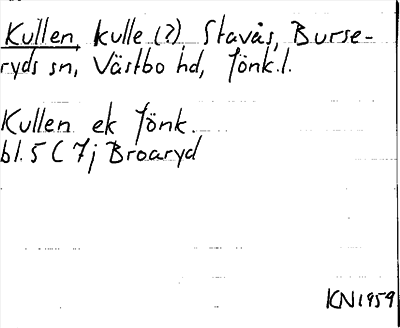 Kullen, kulle (?), Stavås, Burse-
ryds sn, Västbo hd, Jönk.l.
Kullen ek Jönk.
bl. 5 C 7 j Broaryd
KN 1959